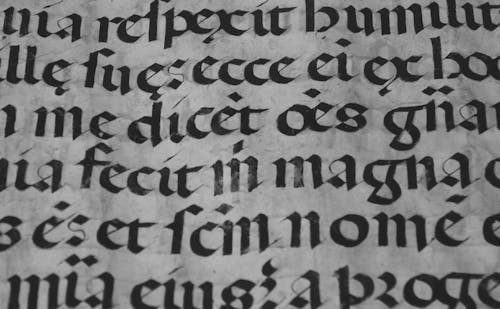 uia respexit humilit
illę suę: ecce ei ex hoc
me dicēt oēs gn̄a
uia fecit m̄ magna
s ē: et scm̄ nomē e
mīa eius: a proge